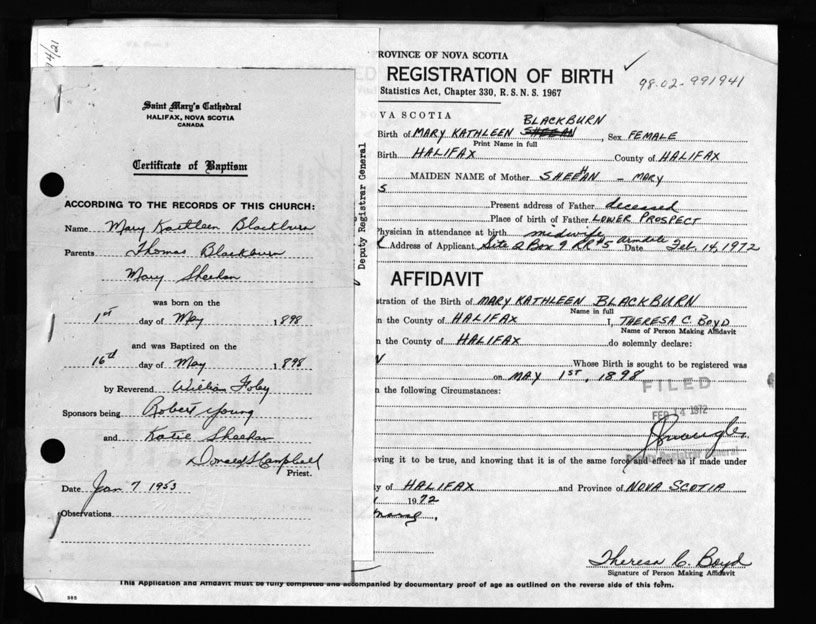 94/21
Saint Mary's Cathedral
HALIFAX, NOVA SCOTIA
CANADA
Certificate of Baptism
ACCORDING TO THE RECORDS OF THIS CHURCH:
Name Mary Kathleen Blackburn
Parents Thomas Blackburn
Mary Sheehan
was born on the
1st day of May 1898
and was Baptized on the
16th day of May 1898
by Reverend William Foley
Sponsors being Robert Young
and Katie Sheehan
Donald Campbell
Priest.
Date Jan 7 1953
Observations
Deputy Registrar General
ROVINCE OF NOVA SCOTIA
REGISTRATION OF BIRTH
98-02-991941
Statistics Act, Chapter 330, R. S. N. S. 1967
VA SCOTIA
BLACKBURN
Birth of MARY KATHLEEN SHEEAN, Sex FEMALE
Print Name in full
Birth HALIFAX County of HALIFAX
MAIDEN NAME of Mother SHEEHAN - MARY
S
Present address of Father deceased
Place of birth of Father LOWER PROSPECT
Physician in attendance at birth midwife
Address of Applicant Site 2 Box 9 RR#5 Armdale Date Feb. 14, 1972
AFFIDAVIT
stration of the Birth of MARY KATHLEEN BLACKBURN
Name in full
n the County of HALIFAX I, THERESA C. BOYD
Name of Person Making Affidavit
n the County of HALIFAX do solemnly declare:
Whose Birth is sought to be registered was
on MAY 1ST, 1898
n the following Circumstances:
FILED
FEB 14 1972
eving it to be true, and knowing that it is of the same force and effect as if made under
ty of HALIFAX and Province of NOVA SCOTIA
1972
Theresa C. Boyd
Signature of Person Making Affidavit
This Application and Affidavit must be fully completed and accompanied by documentary proof of age as outlined on the reverse side of this form.